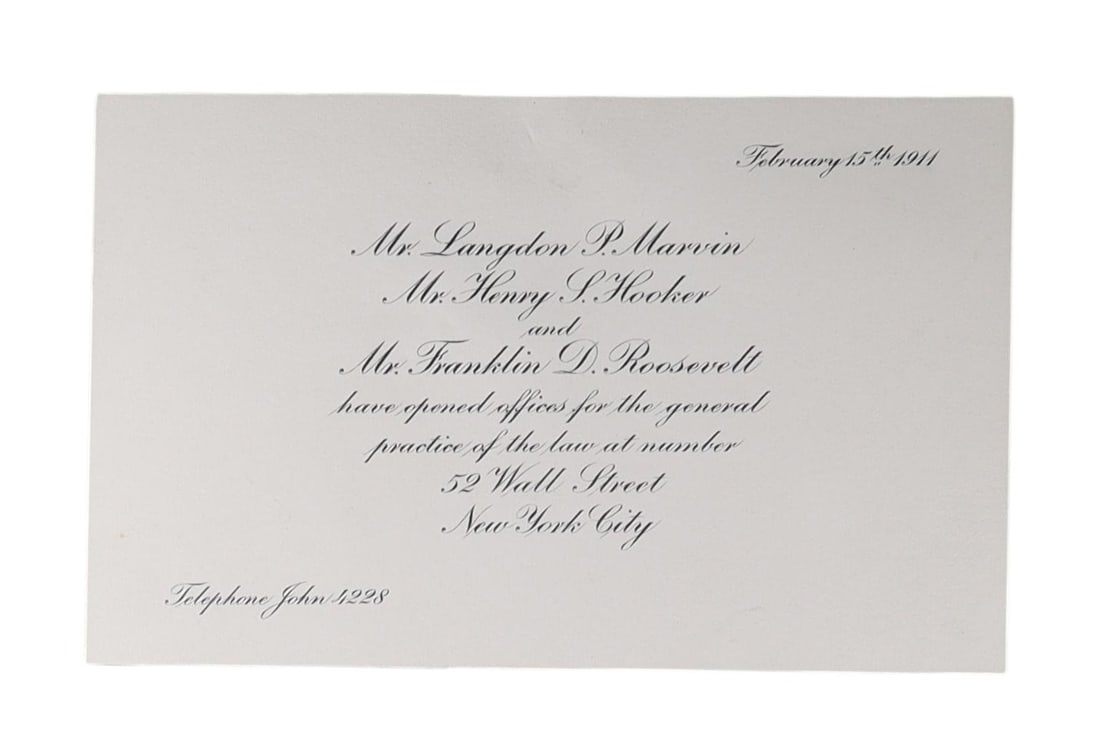 February 15th 1911
Mr. Langdon P. Marvin
Mr. Henry S. Hooker
and
Mr. Franklin D. Roosevelt
have opened offices for the general
practice of the law at number
52 Wall Street
New York City
Telephone John 4228